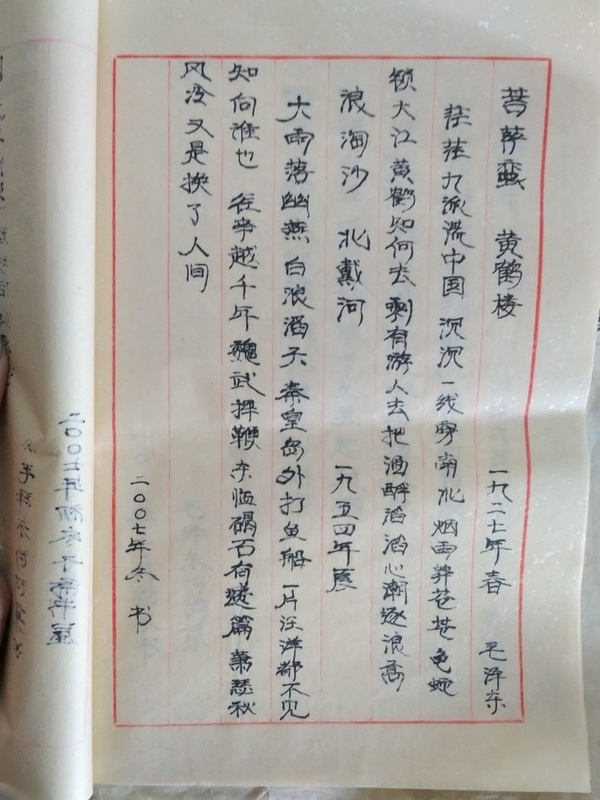 菩萨蛮 黄鹤楼 一九二七年春 毛泽东
茫茫九派流中国 沉沉一线穿南北 烟雨莽苍苍 龟蛇
锁大江 黄鹤知何去 剩有游人去 把酒酹滔滔 心潮逐浪高
浪淘沙 北戴河 一九五四年夏
大雨落幽燕 白浪滔天 秦皇岛外打鱼船 一片汪洋都不见
知向谁也 往事越千年 魏武挥鞭 东临碣石有遗篇 萧瑟秋
风冷 又是换了人间
二〇〇七年冬 书
二〇〇七年